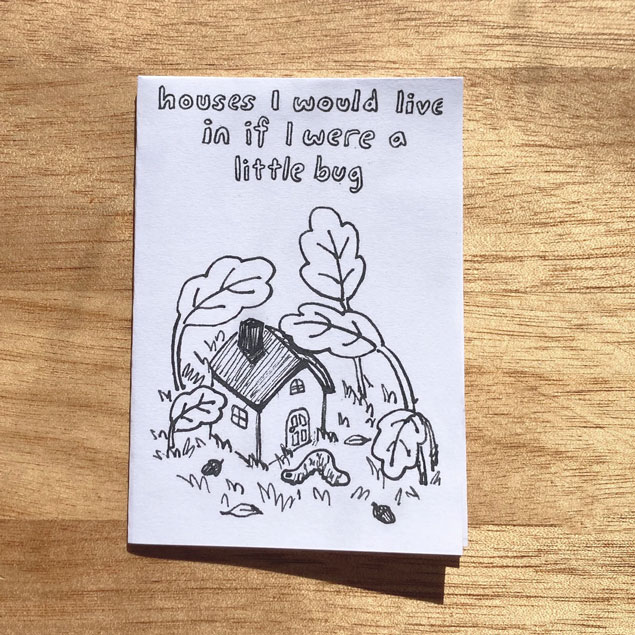 houses I would live
in if I were a
little bug